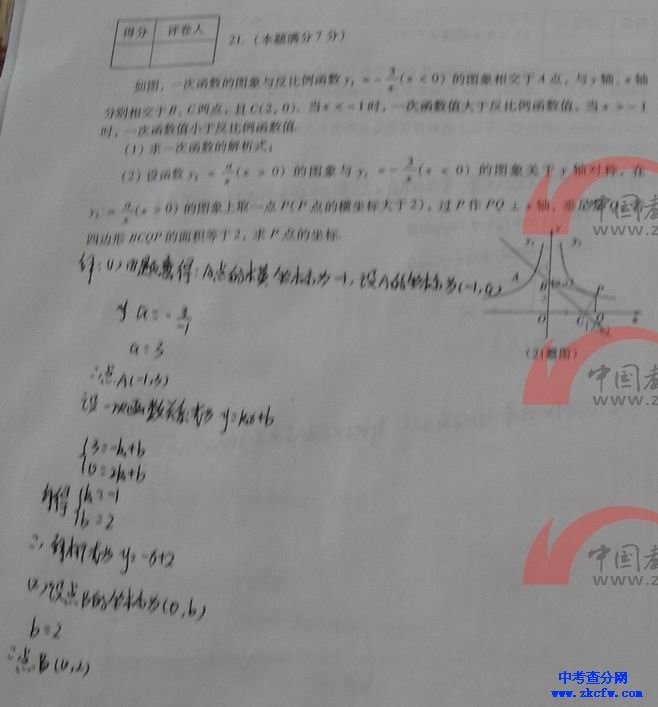 得分 评卷人
21.(本题满分7分)
如图,一次函数的图象与反比例函数y₁=-3/x(x<0)的图象相交于A点,与y轴、x轴
分别相交于B、C两点,且C(2,0).当x<-1时,一次函数值大于反比例函数值,当x>-1
时,一次函数值小于反比例函数值.
(1)求一次函数的解析式;
(2)设函数y₂=a/x(x>0)的图象与y₁=-3/x(x<0)的图象关于y轴对称,在
y₂=a/x(x>0)的图象上取一点P(P点的横坐标大于2),过P作PQ⊥x轴,垂足
四边形BCQP的面积等于2,求P点的坐标.
y₁ y y₂
A B P
O C Q x
(21题图)
解:(1)由题意得:A点的横坐标为-1,设A的坐标为(-1,a)
a=-3/-1
a=3
∴点A(-1,3)
设一次函数关系式为y=kx+b
{3=-k+b
{0=2k+b
解得{k=-1
{b=2
∴解析式为y=-x+2
(2)设点B的坐标为(0,b)
b=2
∴点B(0,2)
中国
www.z
中国教
www.z
中国教
www.z
中考查分网
www.zkcfw.com